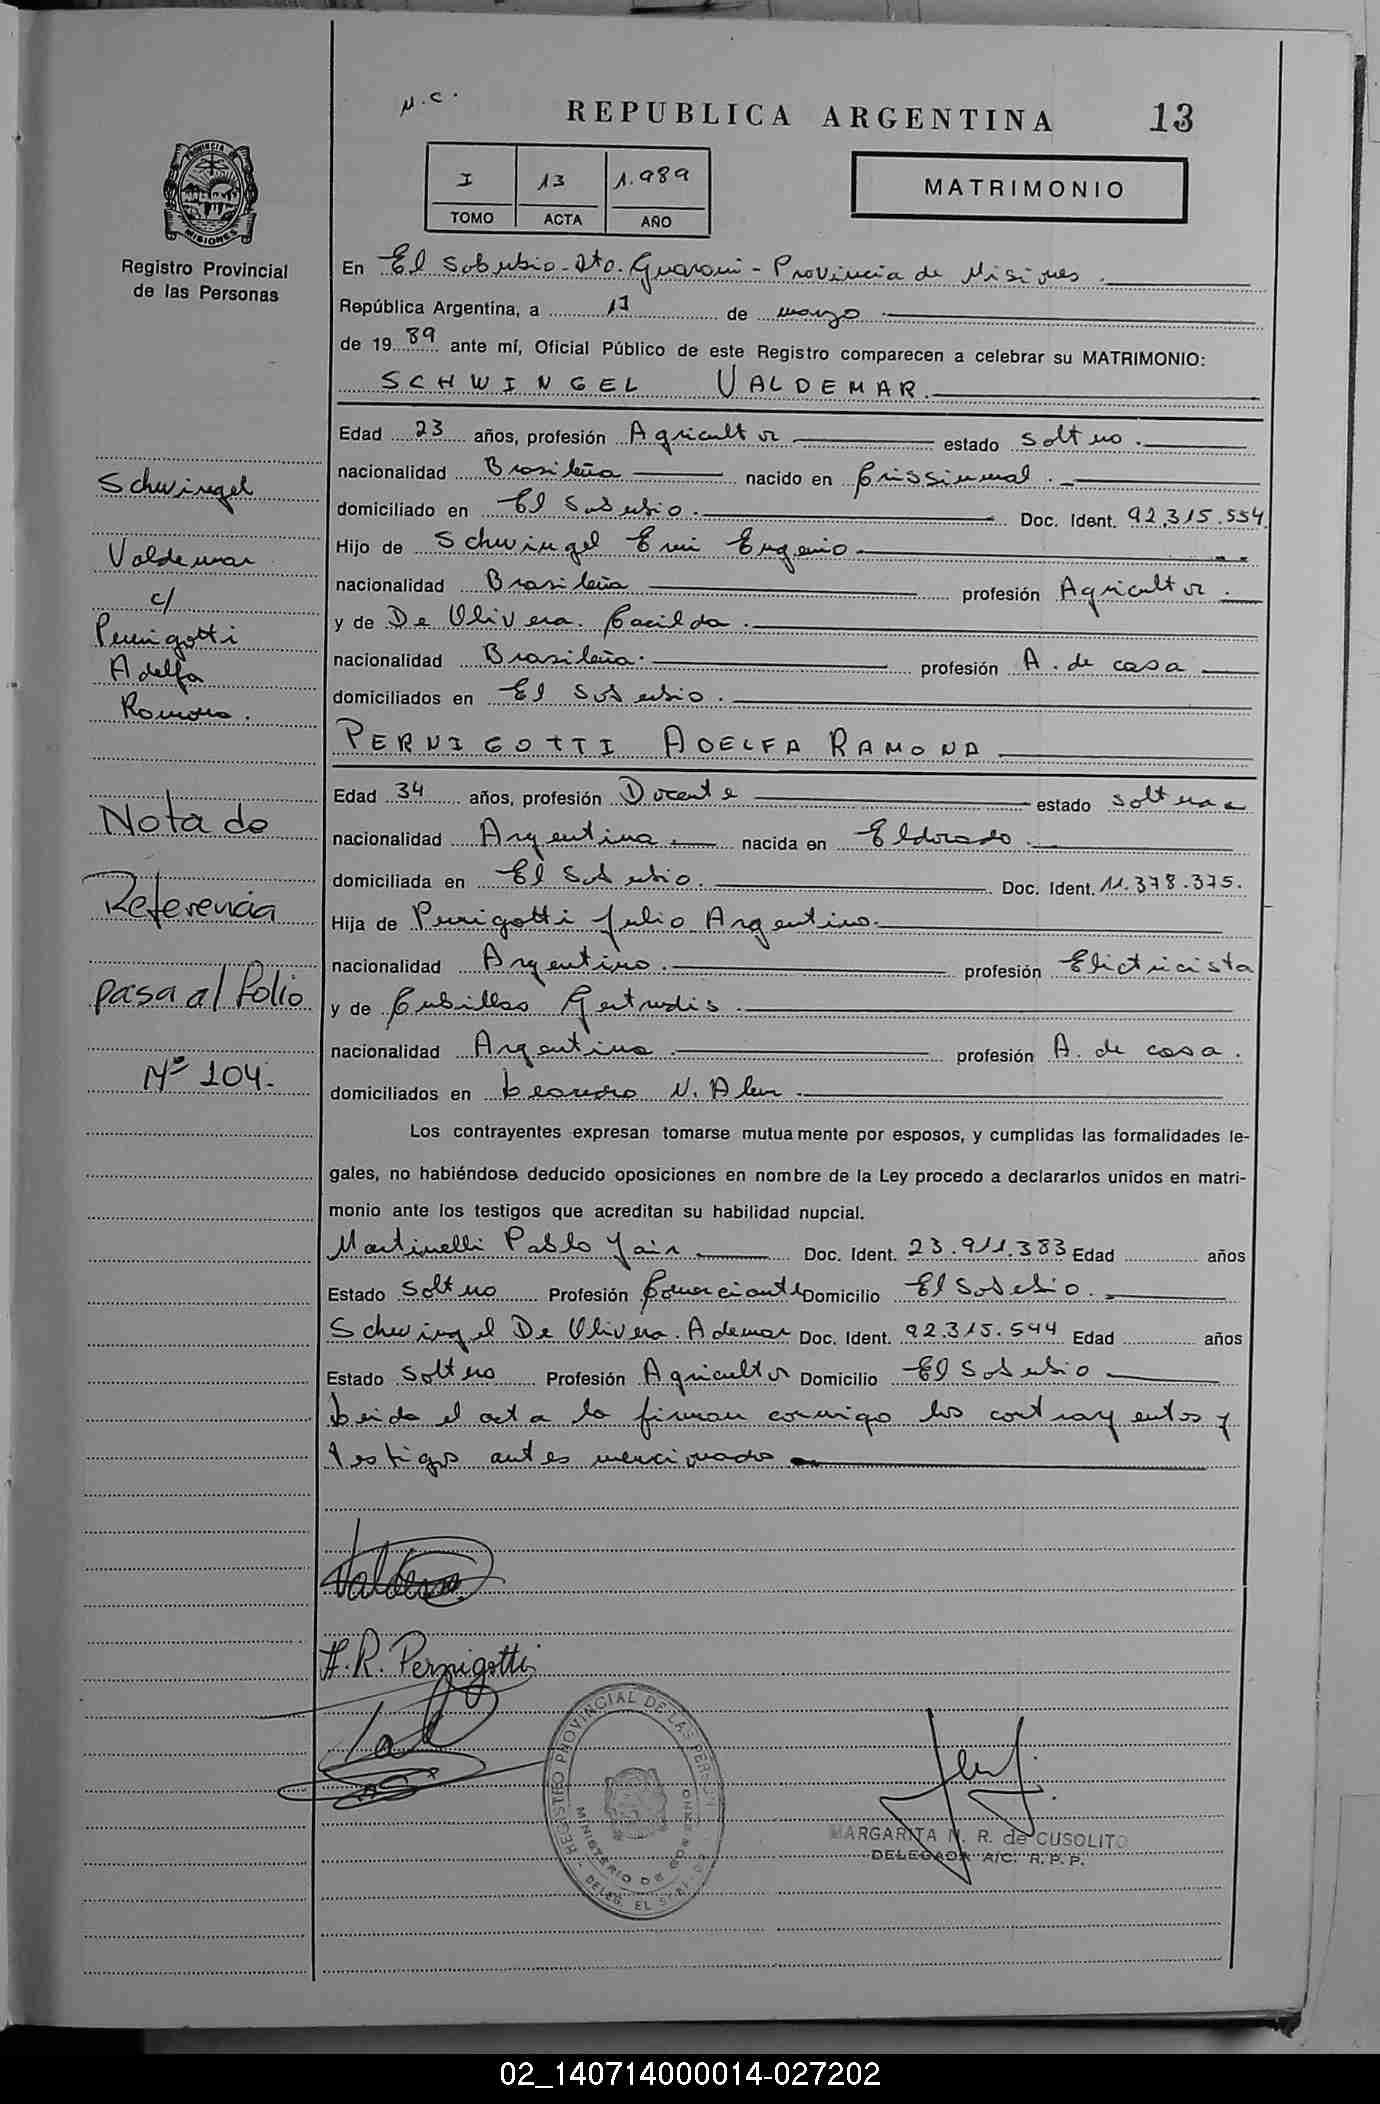 M.C. REPUBLICA ARGENTINA 13
I 13 1.989
TOMO ACTA AÑO
MATRIMONIO
PROVINCIA DE MISIONES
Registro Provincial
de las Personas
En El Soberbio - Dto. Guarani - Provincia de Misiones.
República Argentina, a 17 de marzo
de 19 89 ante mí, Oficial Público de este Registro comparecen a celebrar su MATRIMONIO:
SCHWINGEL VALDEMAR.
Edad 23 años, profesión Agricultor estado soltero.
nacionalidad Brasileña nacido en Crissiumal.
domiciliado en El Soberbio. Doc. Ident. 92.315.554
Hijo de Schwingel Erni Eugenio
nacionalidad Brasileña profesión Agricultor.
y de De Olivera. Cacilda.
nacionalidad Brasileña. profesión A. de casa
domiciliados en El Soberbio.
PERNIGOTTI ADELFA RAMONA
Edad 34 años, profesión Docente estado soltera
nacionalidad Argentina nacida en Eldorado.
domiciliada en El Soberbio. Doc. Ident. 11.378.375.
Hija de Pernigotti Julio Argentino.
nacionalidad Argentino. profesión Elictricista
y de Cubillas Gertrudis.
nacionalidad Argentina. profesión A. de casa.
domiciliados en Leandro N. Alem.
Los contrayentes expresan tomarse mutuamente por esposos, y cumplidas las formalidades le-
gales, no habiéndose deducido oposiciones en nombre de la Ley procedo a declararlos unidos en matri-
monio ante los testigos que acreditan su habilidad nupcial.
Martinelli Pablo Yair Doc. Ident. 23.911.383 Edad años
Estado soltero Profesión Comerciante Domicilio El Soberbio.
Schwingel De Olivera. Ademar Doc. Ident. 92.315.544 Edad años
Estado soltero Profesión Agricultor Domicilio El Soberbio
Leida el acta la firman conmigo los contrayentes y
testigos antes mencionados
Schwingel
Valdemar
c/
Pernigotti
Adelfa
Ramona.
Nota de
Referencia
pasa al folio
Nº 104.-
A. R. Pernigotti
REGISTRO PROVINCIAL DE LAS PERSONAS
MINISTERIO DE GOBIERNO
MARGARITA N. R. de CUSOLITO
DELEGADA A/C. R. P. P.
02_140714000014-027202